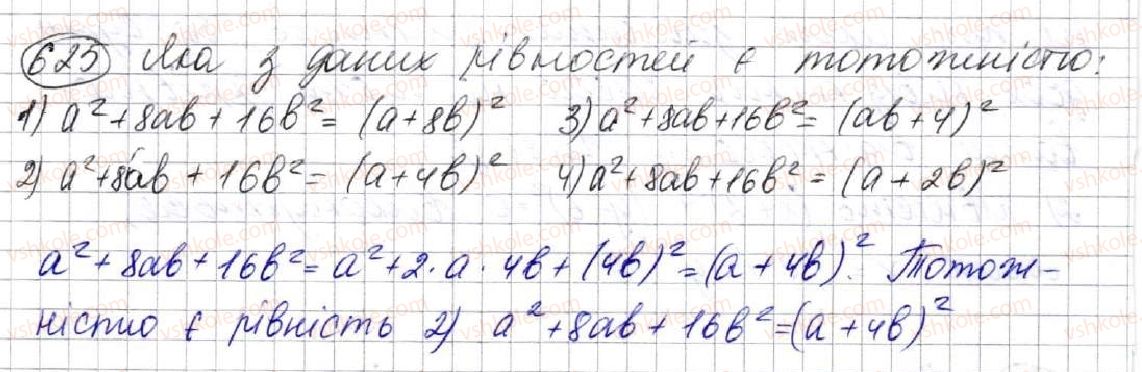 625 Яка з даних рівностей є тотожністю:
1) a²+8ab+16b²=(a+8b)² 3) a²+8ab+16b²=(ab+4)²
2) a²+8ab+16b²=(a+4b)² 4) a²+8ab+16b²=(a+2b)²
a²+8ab+16b²=a²+2·a·4b+(4b)²=(a+4b)². Тотож-
ністю є рівність 2) a²+8ab+16b²=(a+4b)²